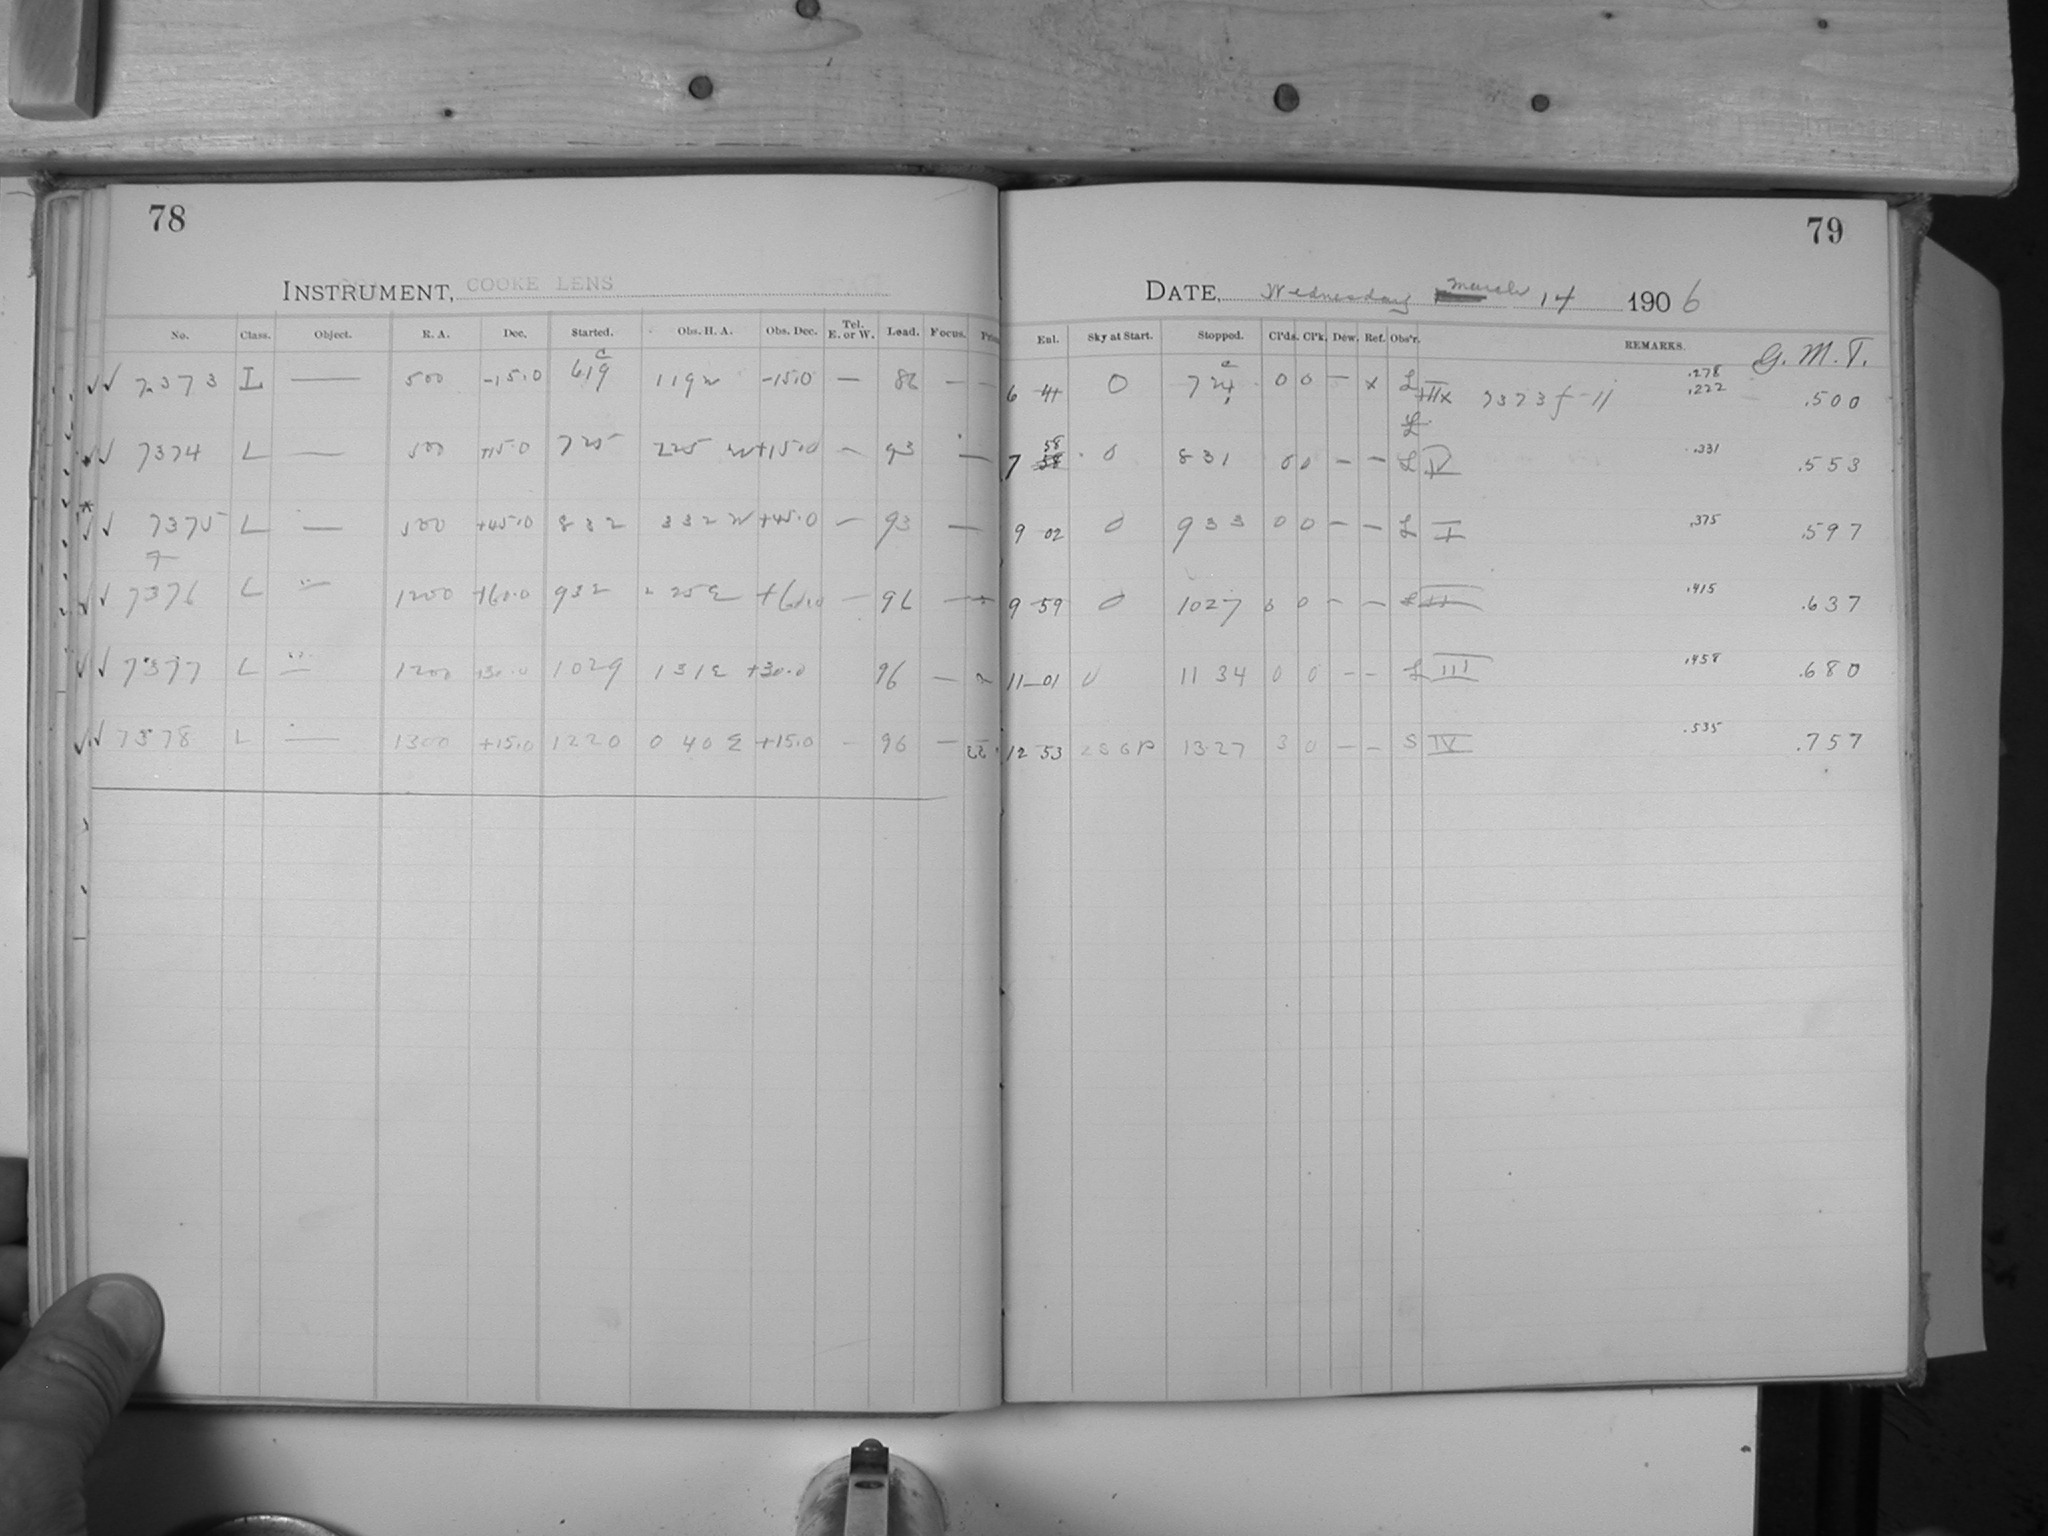 78
INSTRUMENT, COOKE LENS
No. Class. Object. R. A. Dec. Started. Obs. H. A. Obs. Dec. Tel. E. or W. Lead. Focus.
7373 L — 500 -15.0 619 119 W -15.0 — 86 —
7374 L — 500 +15.0 725 225 W +15.0 — 93 —
7375 L — 500 +45.0 832 332 W +45.0 — 93 —
7376 L — 1200 +60.0 932 25 E +60.0 — 96 —
7377 L — 1200 +30.0 1029 131 E +30.0 96 —
7378 L — 1300 +15.0 1220 0 40 E +15.0 — 96 —
79
DATE, Wednesday March 14 1906
Enl. Sky at Start. Stopped. Cl'ds. Cl'k. Dew. Ref. Obs'r. REMARKS. G. M. T.
6 41 0 724 0 0 — x L 7373 f-11 .278 .222 .500
7 58 0 831 0 0 — — L IV .331 .553
9 02 0 933 0 0 — — L I .375 .597
9 59 0 1027 0 0 — — L II .415 .637
11-01 0 11 34 0 0 — — L III .458 .680
12 53 13.27 3 0 — — S IV .535 .757